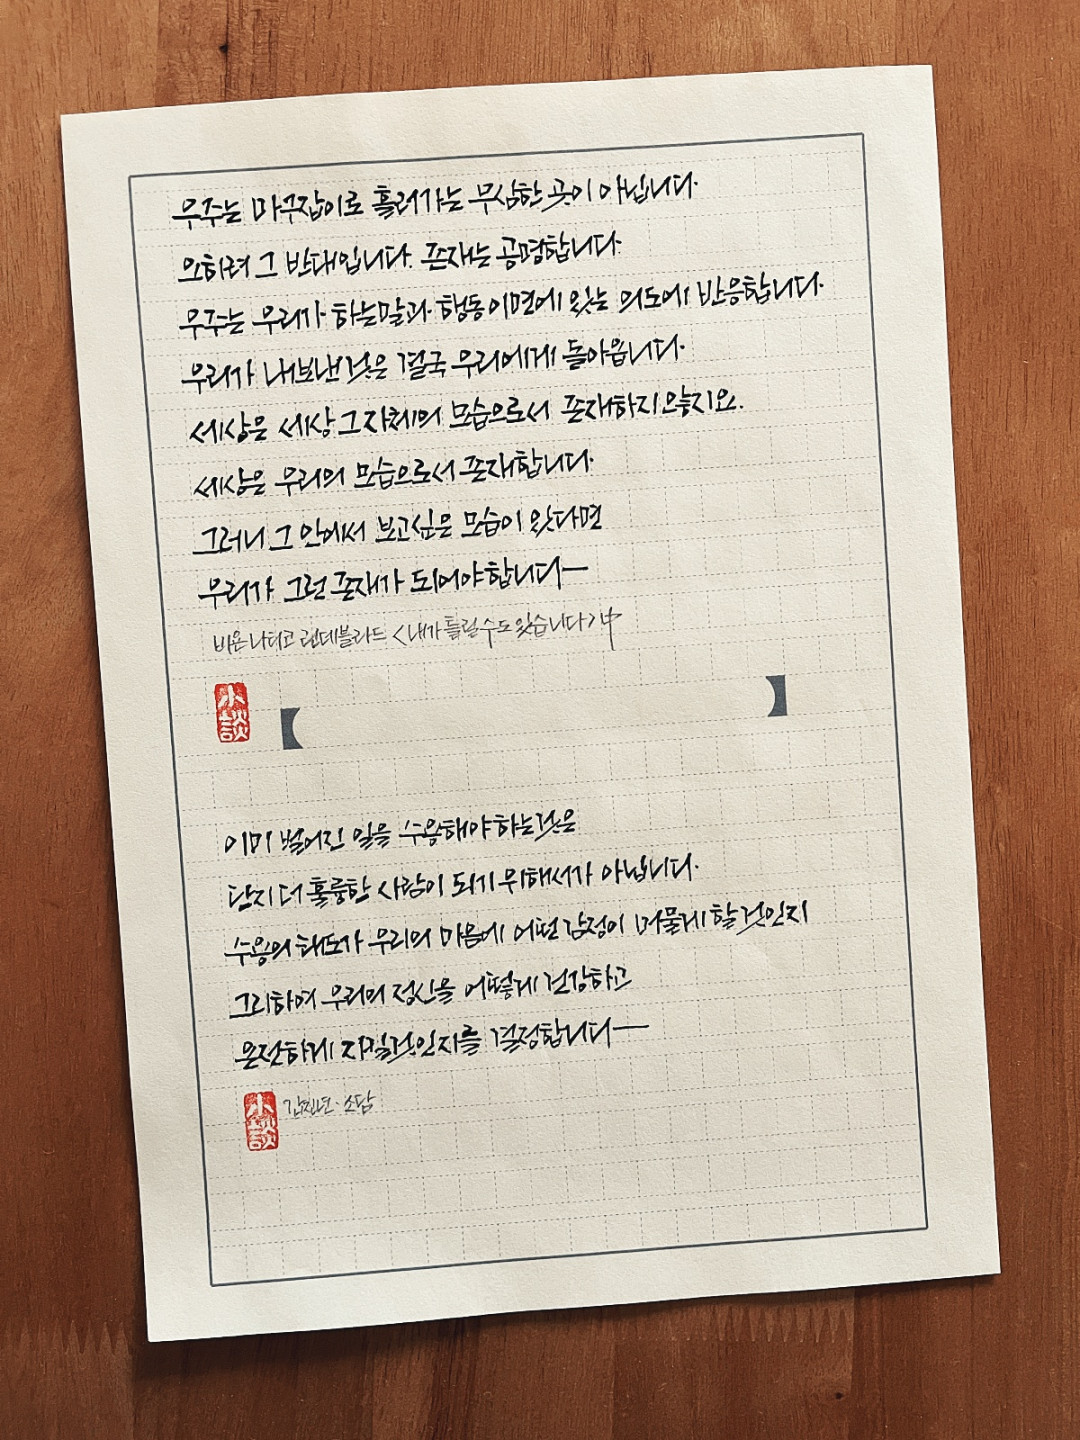 우주는 마구잡이로 흘러가는 무심한 곳이 아닙니다.
오히려 그 반대입니다. 존재는 공명합니다.
우주는 우리가 하는말과 행동 이면에 있는 의도에 반응합니다.
우리가 내보낸 것은 결국 우리에게 돌아옵니다.
세상은 세상 그 자체의 모습으로서 존재하지 않지요.
세상은 우리의 모습으로서 존재합니다.
그러니 그 안에서 보고싶은 모습이 있다면
우리가 그런 존재가 되어야 합니다—
비욘 나티코 린데블라드 <내가 틀릴 수도 있습니다> 中
小談
이미 벌어진 일을 수용해야 하는 것은
단지 더 훌륭한 사람이 되기 위해서가 아닙니다.
수용의 태도가 우리의 마음에 어떤 감정이 머물게 할 것인지
그리하여 우리의 정신을 어떻게 건강하고
온전하게 지킬것인지를 결정합니다—
小談
소담